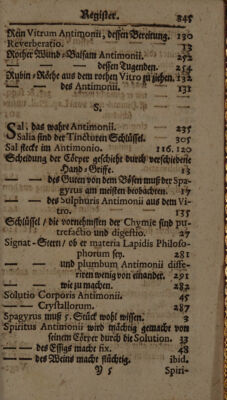 Register. 845
Rein Vitrum Antimonii, dessen Bereitung. 130
Reverberatio. 13
Rother Wund-Balsam Antimonii. 252
— — dessen Tugenden. 254
Rubin-Röthe aus dem rothen Vitro zu ziehen. 132
— — des Antimonii. 131
S.
Sal, das wahre Antimonii. 235
Salia sind der Tincturen Schlüssel. 305
Sal steckt im Antimonio. 116. 120
Scheidung der Cörper geschieht durch verschiedene
Hand-Griffe. 13
— — des Guten von dem Bösen muß der Spa-
gyrus am meisten beobachten. 17
— — des Sulphuris Antimonii aus dem Vi-
tro. 135
Schlüssel / die vornehmsten der Chymie sind pu-
trefactio und digestio. 27
Signat-Stern / ob er materia Lapidis Philoso-
phorum sey. 281
— — und plumbum Antimonii diffe-
riren wenig von einander. 291
— — wie zu machen. 282
Solutio Corporis Antimonii. 45
— — Crystallorum. 287
Spagyrus muß 5. Stück wohl wissen. 3
Spiritus Antimonii wird mächtig gemacht von
seinem Cörper durch die Solution. 33
— — des Essigs macht fix. 48
— — des Weins macht flüchtig. ibid.
Y 5 Spiri-